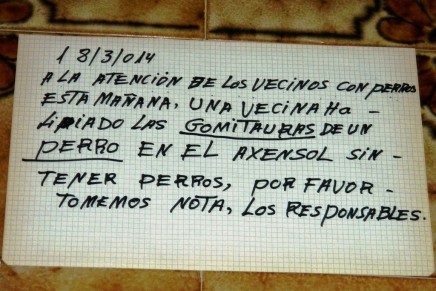 18/3/014
A LA ATENCIÓN DE LOS VECINOS CON PERROS
ESTA MAÑANA, UNA VECINA HA -
LIPIADO LAS GOMITAURAS DE UN
PERRO EN EL AXENSOL SIN -
TENER PERROS, POR FAVOR -
TOMEMOS NOTA, LOS RESPONSABLES.